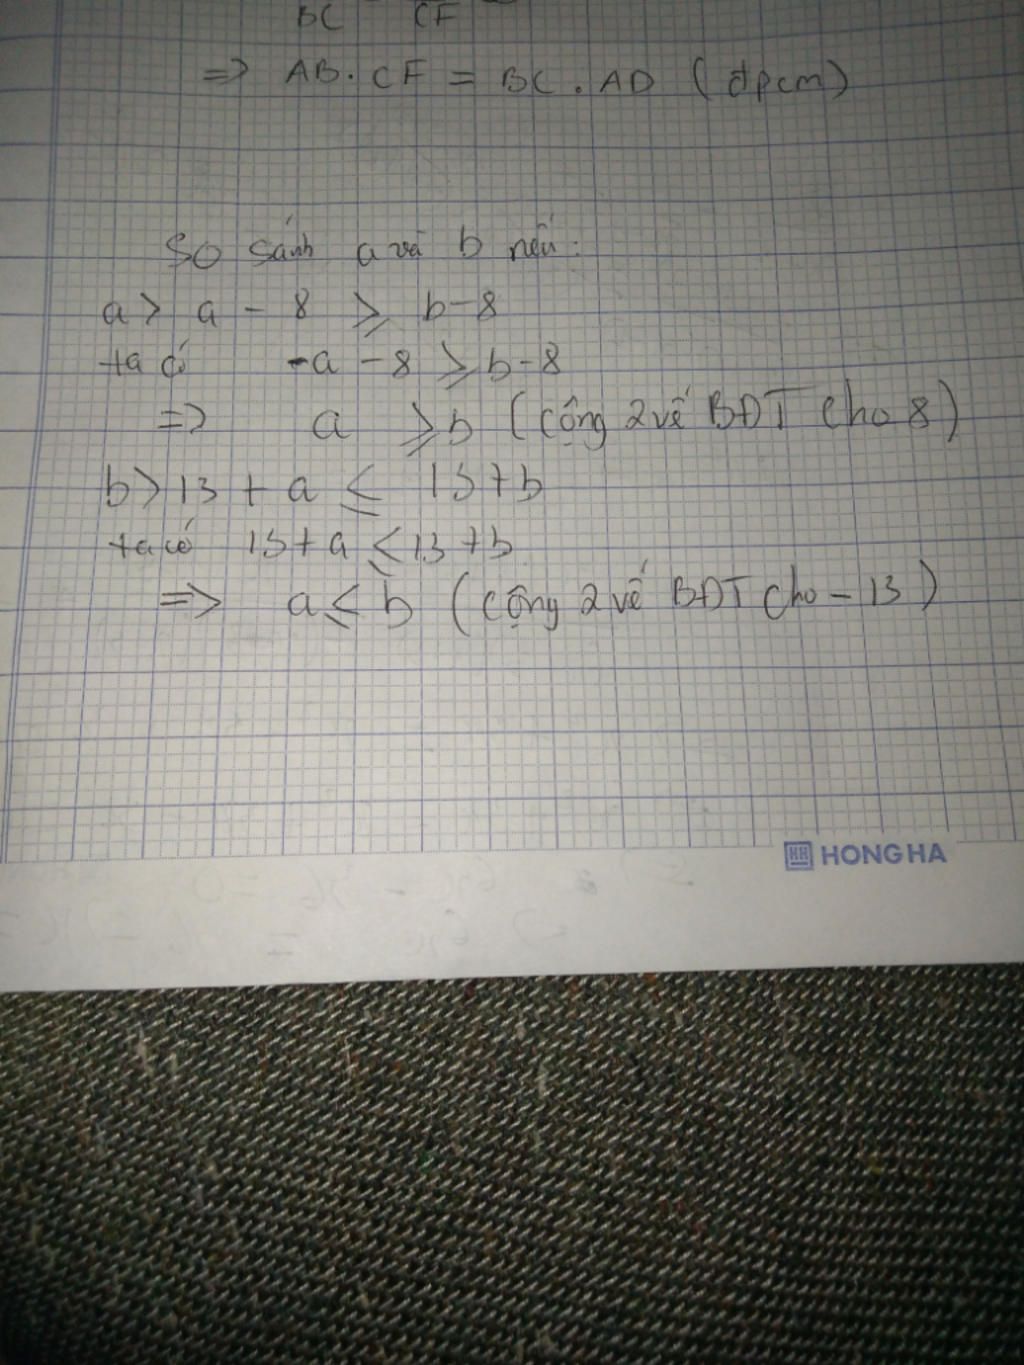 BC CF
=> AB. CF = BC . AD (đpcm)
So sánh a và b nếu:
a> a - 8 ⩾ b-8
ta có -a - 8 ⩾ b-8
=> a ⩾ b (cộng 2 vế BĐT cho 8)
b> 13 + a ≤ 13+b
ta có 13+a ≤ 13 +b
=> a ≤ b (cộng 2 vế BĐT cho - 13)
HONG HA